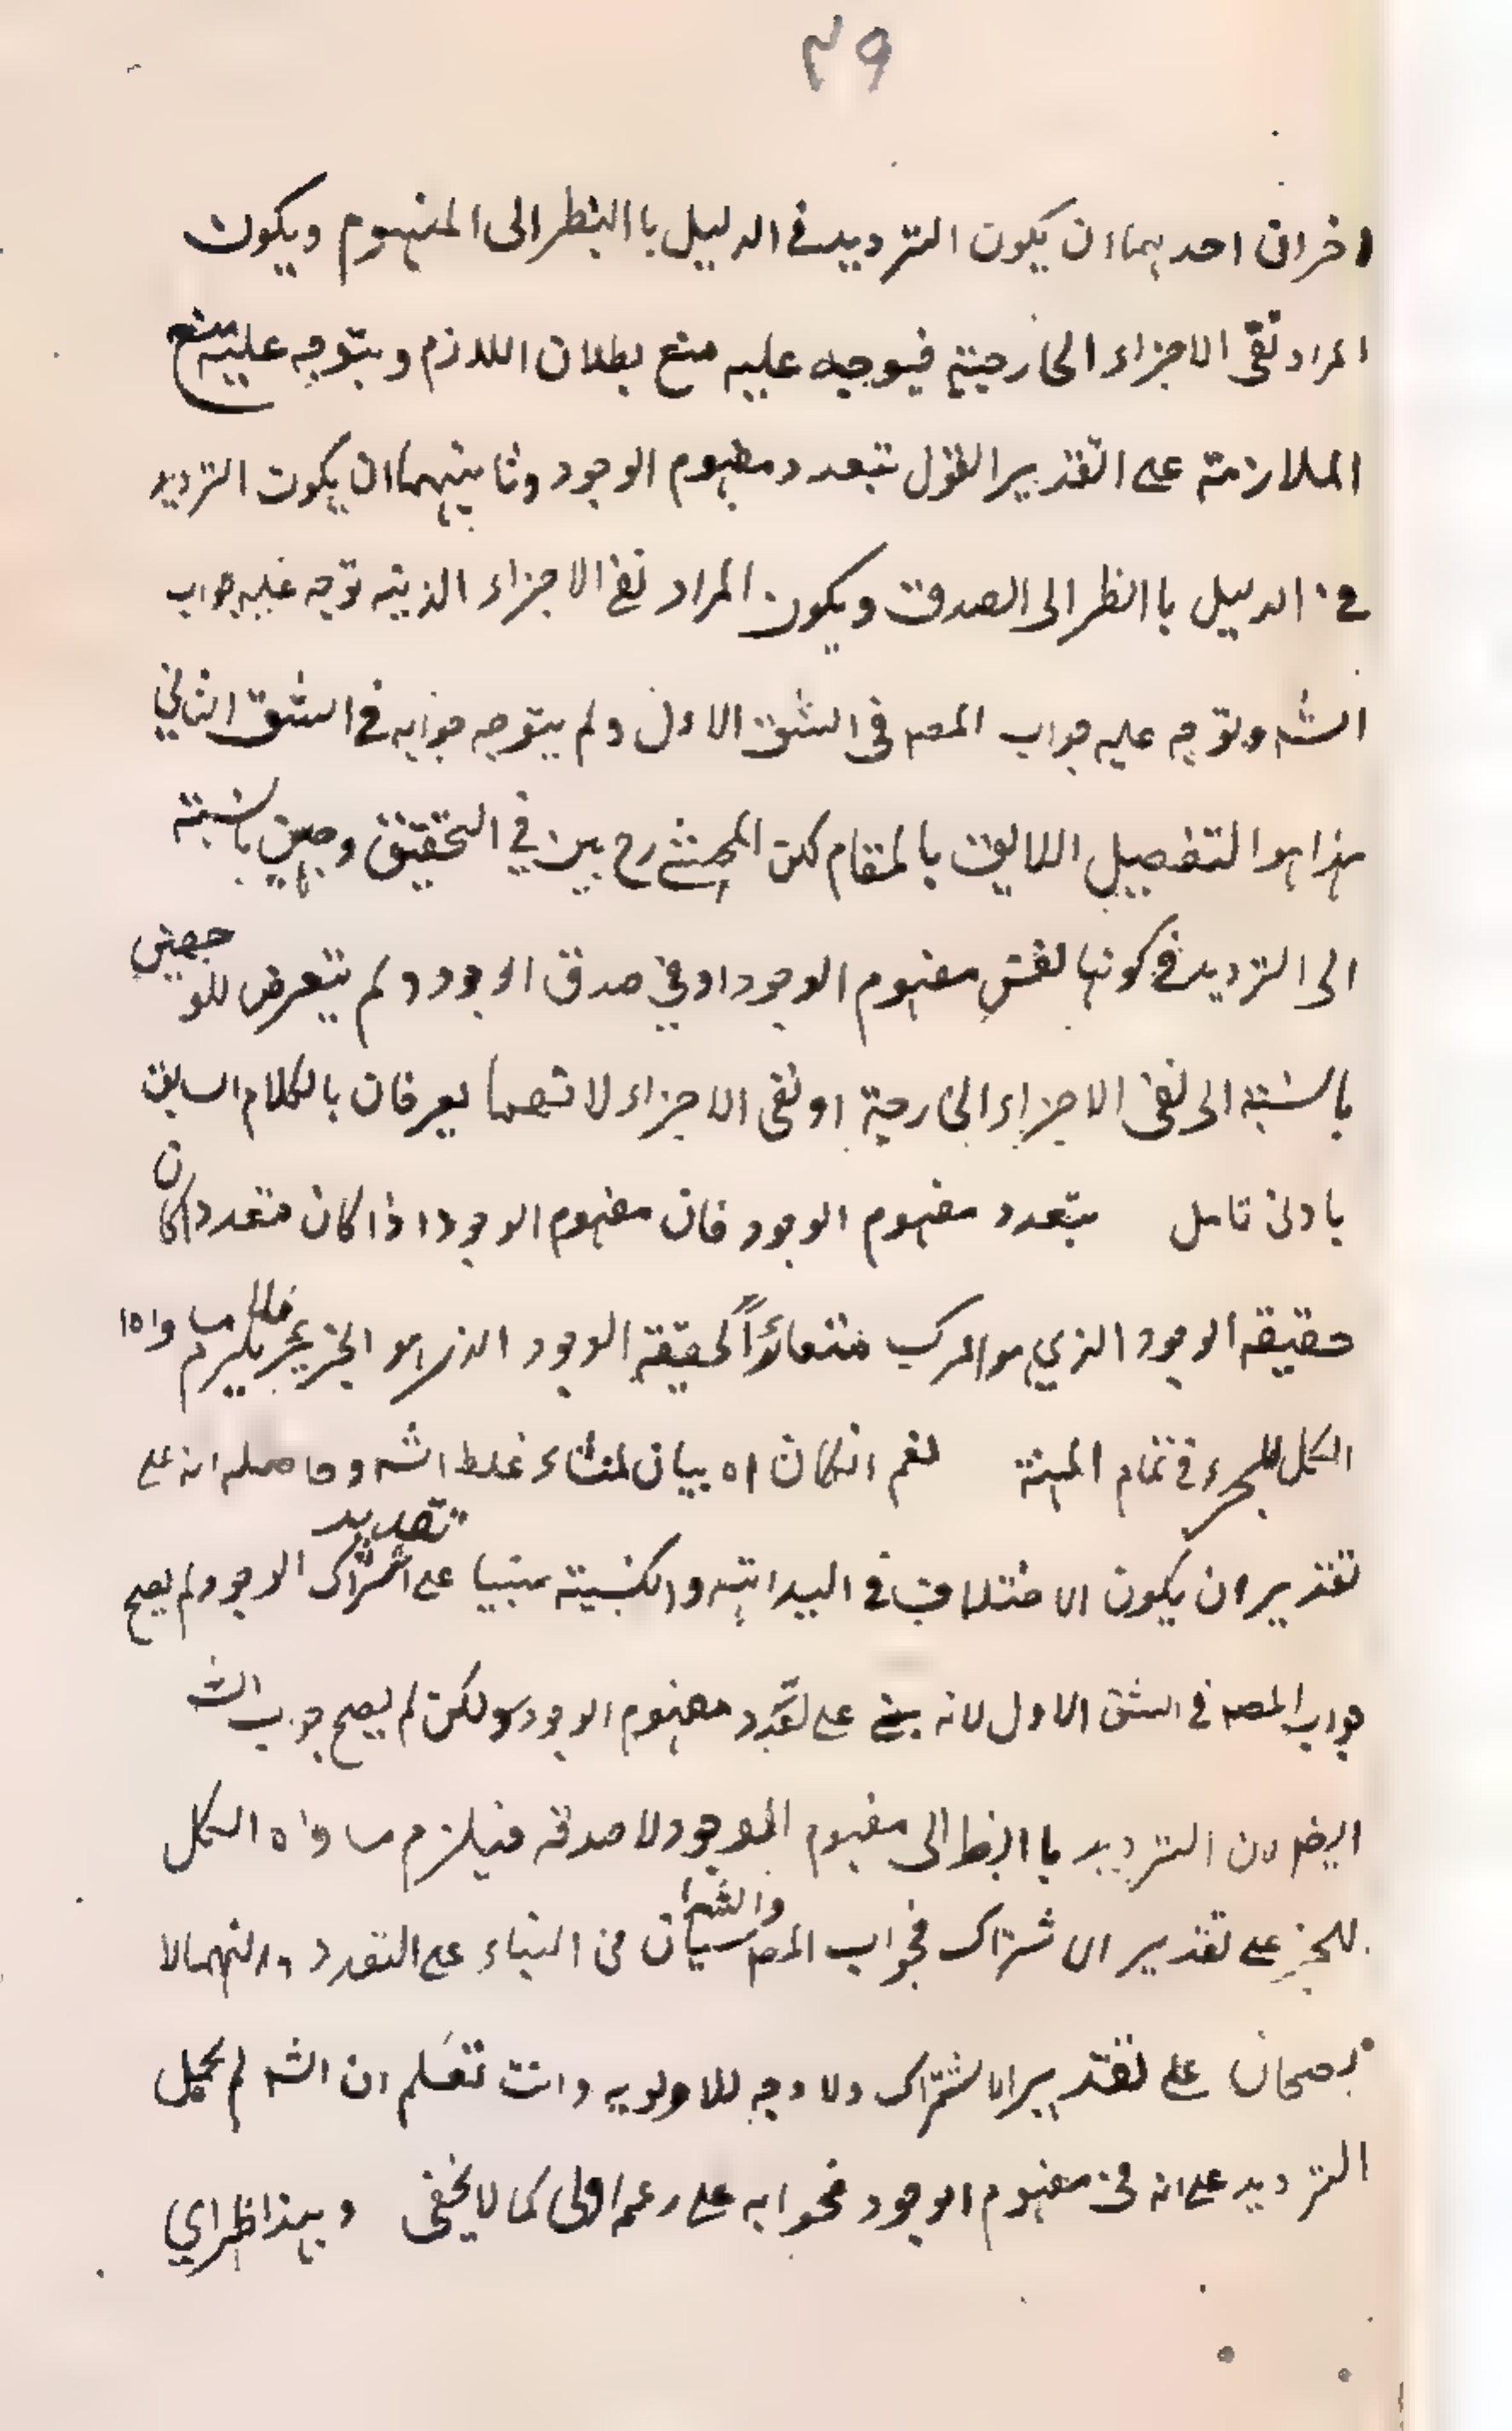 ٣٩
اخران احدهما ان يكون الترديد في الدليل باالنظر الى المفهوم ويكون
المراد نفى الاجزاء الخارجية فيوجه عليه منع بطلان اللازم ويتوجه عليه منع
الملازمة على القدير القول بتعدد مفهوم الوجود وثانيهما ان يكون الترديد
في الدليل باالنظر الى الصدق ويكون المراد نفي الاجزاء الذهنيه توجه عليه جواب
الشه وتوجه عليه جواب المصه في الشق الاول ولم يتوجه جوابه في الشق الثاني
هذا هو التفصيل اللايق بالمقام لكن المحشي رح بين في التحقيق وجهين بالنسبة
الى الترديد في كونها لنفس مفهوم الوجود او في صدق الوجود ولم يتعرض للوجهين
بالنسبة الى نفى الاجزاء الخارجية او نفى الاجزاء لانهما يعرفان بالكلام السابق
بادنى تامل بتعدد مفهوم الوجود فان مفهوم الوجود اذا كان متعددا كان
حقيقه الوجود الذي هو المركب متغائراً لحقيقة الوجود الذي هو الجزء فلا يلزم مساواه
الكل للجزء في تمام المهية نعم ان كان اه بيان لمنشاء غلط الشه وحاصله انه على
تقدير ان يكون الاختلاف في البداهته والكسبيته مبنيا على تقدير اشتراك الوجود لم يصح
جواب المصه في الشق الاول لانه بني على تعدد مفهوم الوجود ولكن لم يصح جواب الشه
ايضا لان الترديد باالنظر الى مفهوم الموجود لا صدقه فيلزم مساواه الكل
للجزء على تقدير الاشتراك فجواب المص والشه سيان في البناء على التعدد وانهما لا
يصحان على تقدير الاشتراك ولا وجه للاولويه وانت تعلم ان الشه لم يحمل
الترديد على انه في مفهوم الوجود فجوابه على زعمه اولى كما لا يخفى وبهذا ظهر اي